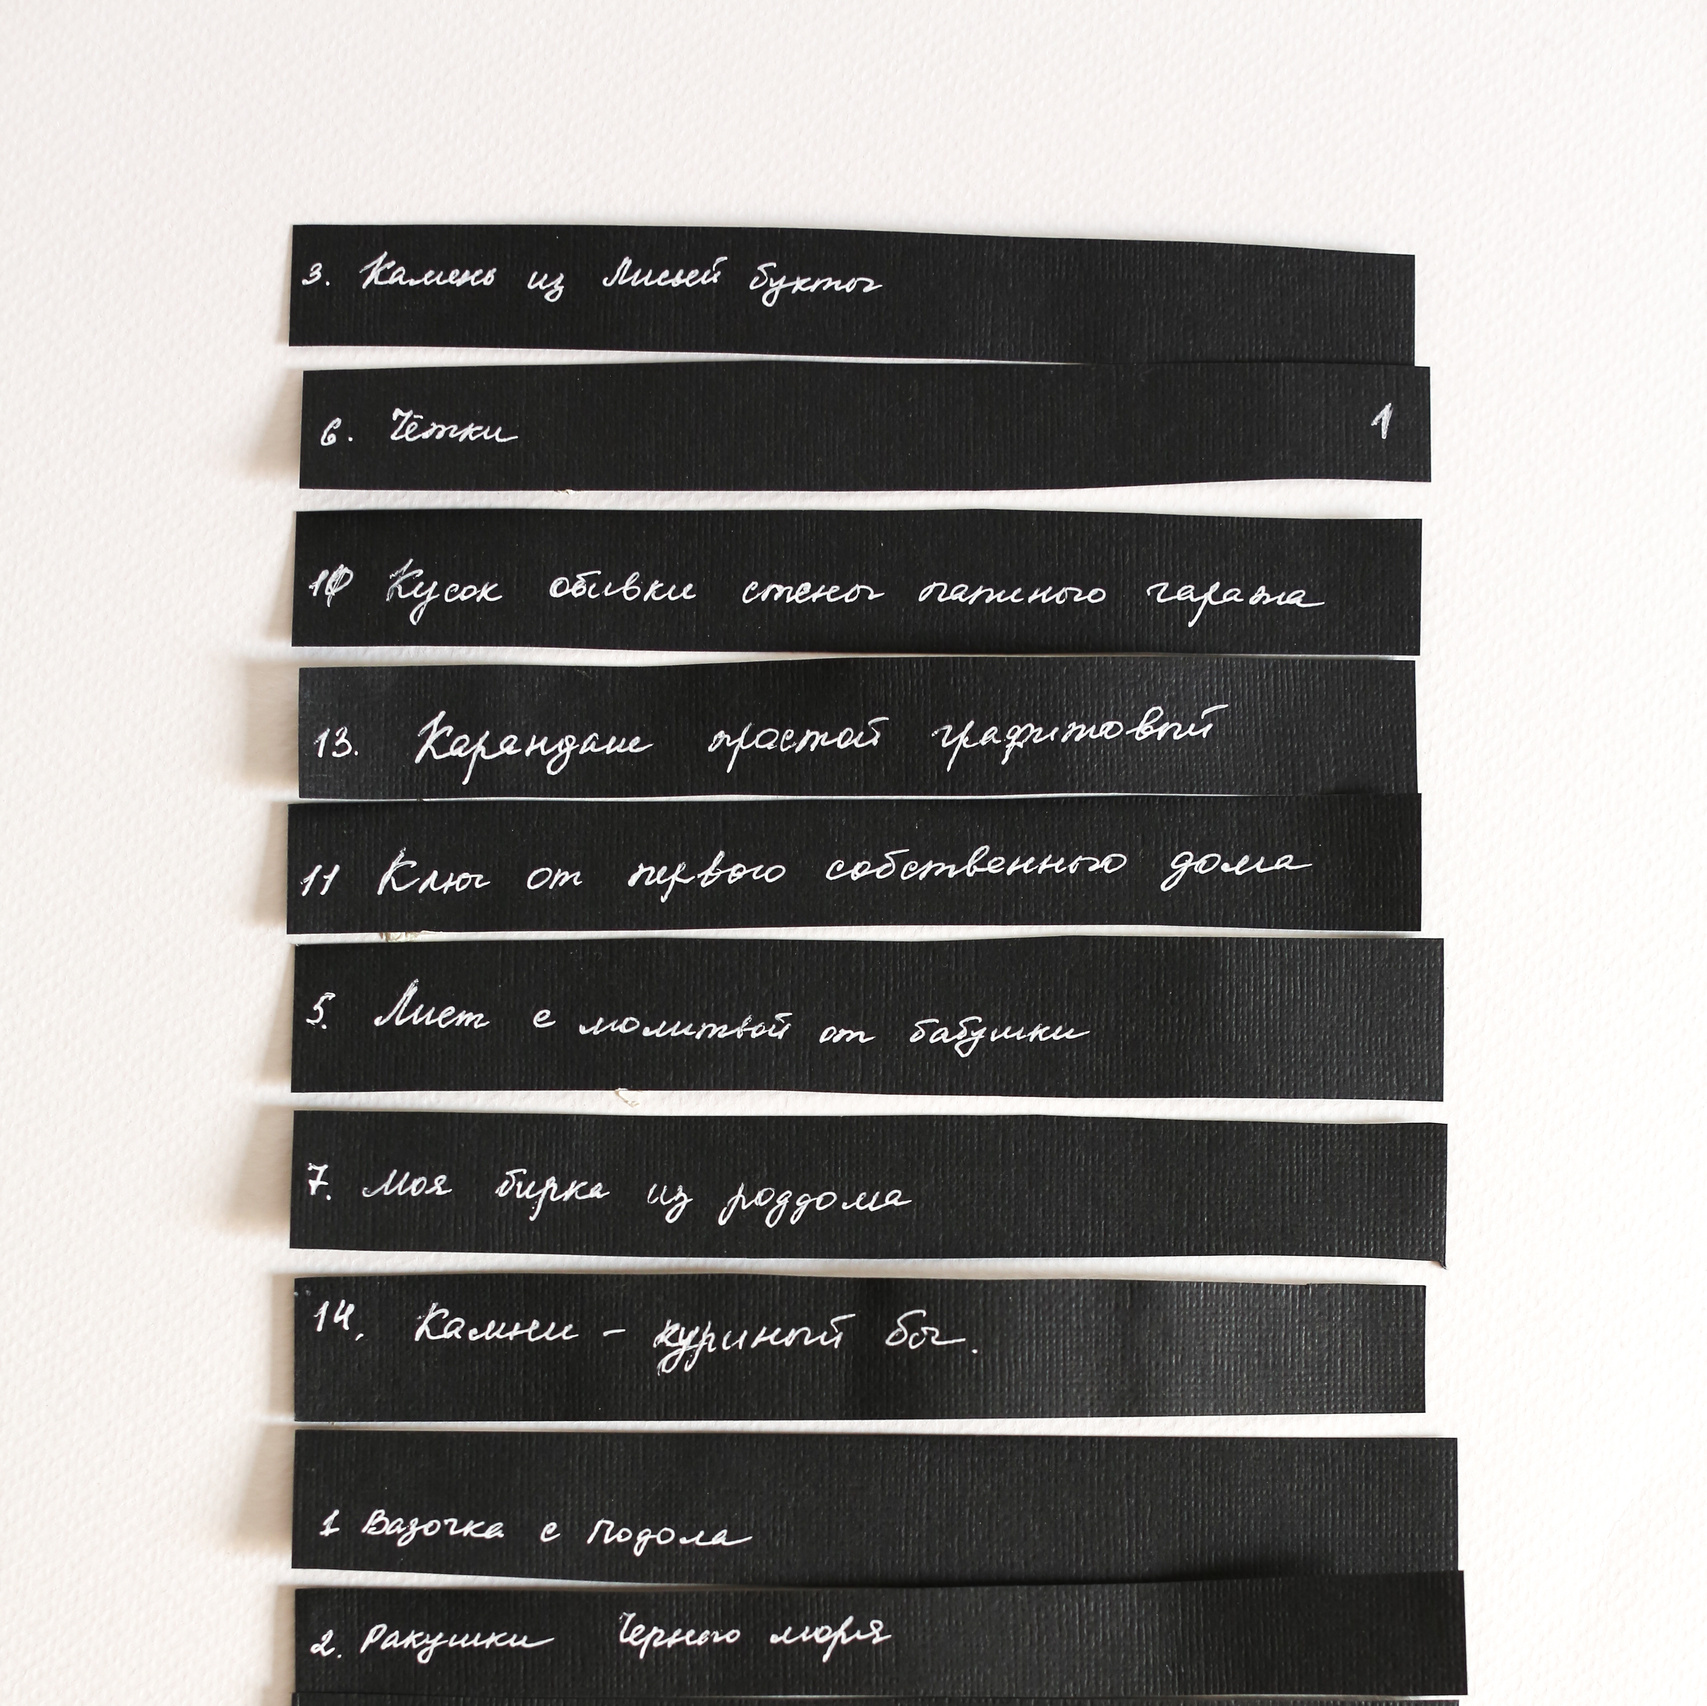 3. Камень из Лисьей бухты
6. Чётки 1
10 Кусок обивки стены папиного гаража
13. Карандаш простой графитовый
11 Ключ от первого собственного дома
5. Лист с молитвой от бабушки
7. Моя бирка из роддома
14. Камни - куриный бог.
1 Вазочка с Подола
2. Ракушки Черного моря